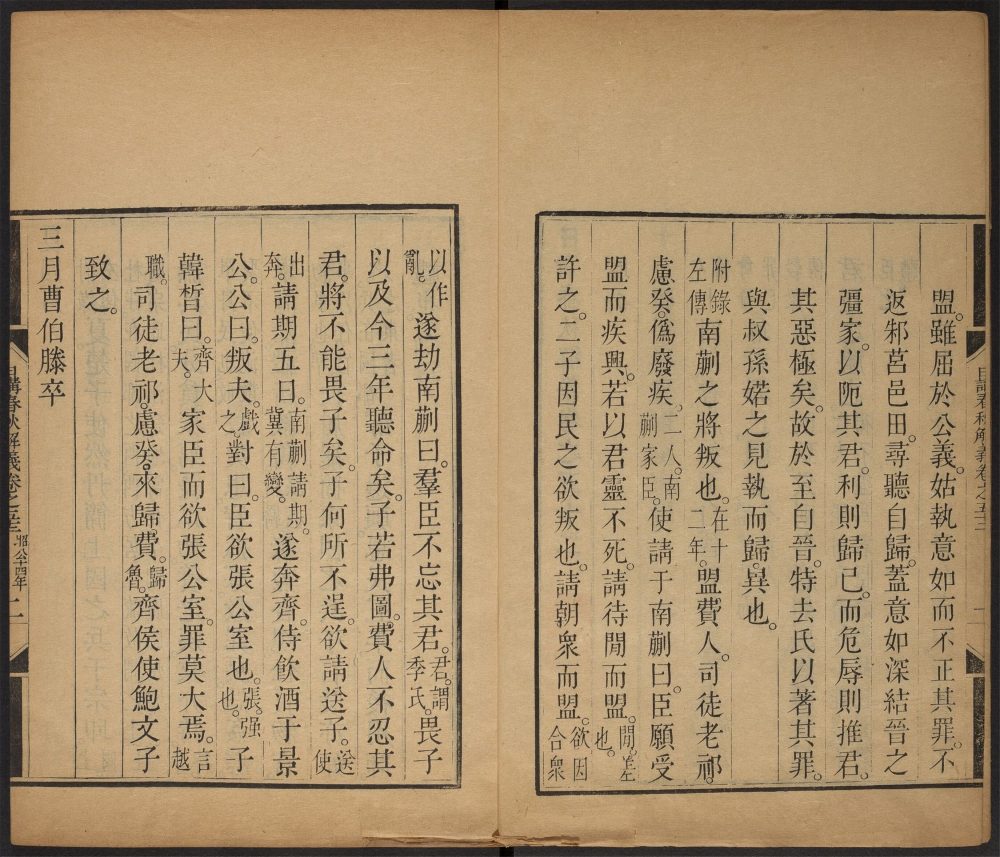 盟。雖屈於公義。姑執意如而不正其罪。不
返邾莒邑田。尋聽自歸。蓋意如深結晉之
彊家。以阨其君。利則歸己。而危辱則推君。
其惡極矣。故於至自晉。特去氏以著其罪。
與叔孫婼之見執而歸。異也。
附錄左傳南蒯之將叛也。在十二年。盟費人。司徒老祁。
慮癸。僞廢疾。二人。南蒯家臣。使請于南蒯曰。臣願受
盟而疾興。若以君靈不死。請待閒而盟。閒。差也。
許之。二子因民之欲叛也。請朝衆而盟。欲因合衆
以作亂。遂劫南蒯曰。羣臣不忘其君。君。謂季氏。畏子
以及今三年聽命矣。子若弗圖。費人不忍其
君。將不能畏子矣。子何所不逞。欲請送子。送使
出奔。請期五日。南蒯請期。冀有變。遂奔齊。侍飲酒于景
公。公曰。叛夫。戲之。對曰。臣欲張公室也。張。强也。子
韓皙曰。齊大夫。家臣而欲張公室。罪莫大焉。言越
職。司徒老祁。慮癸。來歸費。歸魯。齊侯使鮑文子
致之。
三月曹伯滕卒
日講春秋解義卷之五十三 昭公十四年 二